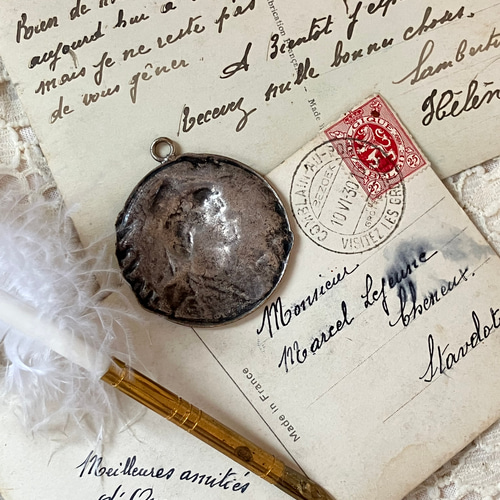 Rien de n
aujourd'hui a
mais je ne reste pas
de vous gêner
A Bientôt j'esp
Recevez mille bonnes choses.
Lambert
Hélèn
Made in
BELGIQUE
COMBLAIN-AU-P
10 VI 30
VISITEZ LES GR
Monsieur
Marcel Lejeune
Cheneux.
Stavelot
Made in France
Meilleures amitiés
d'O